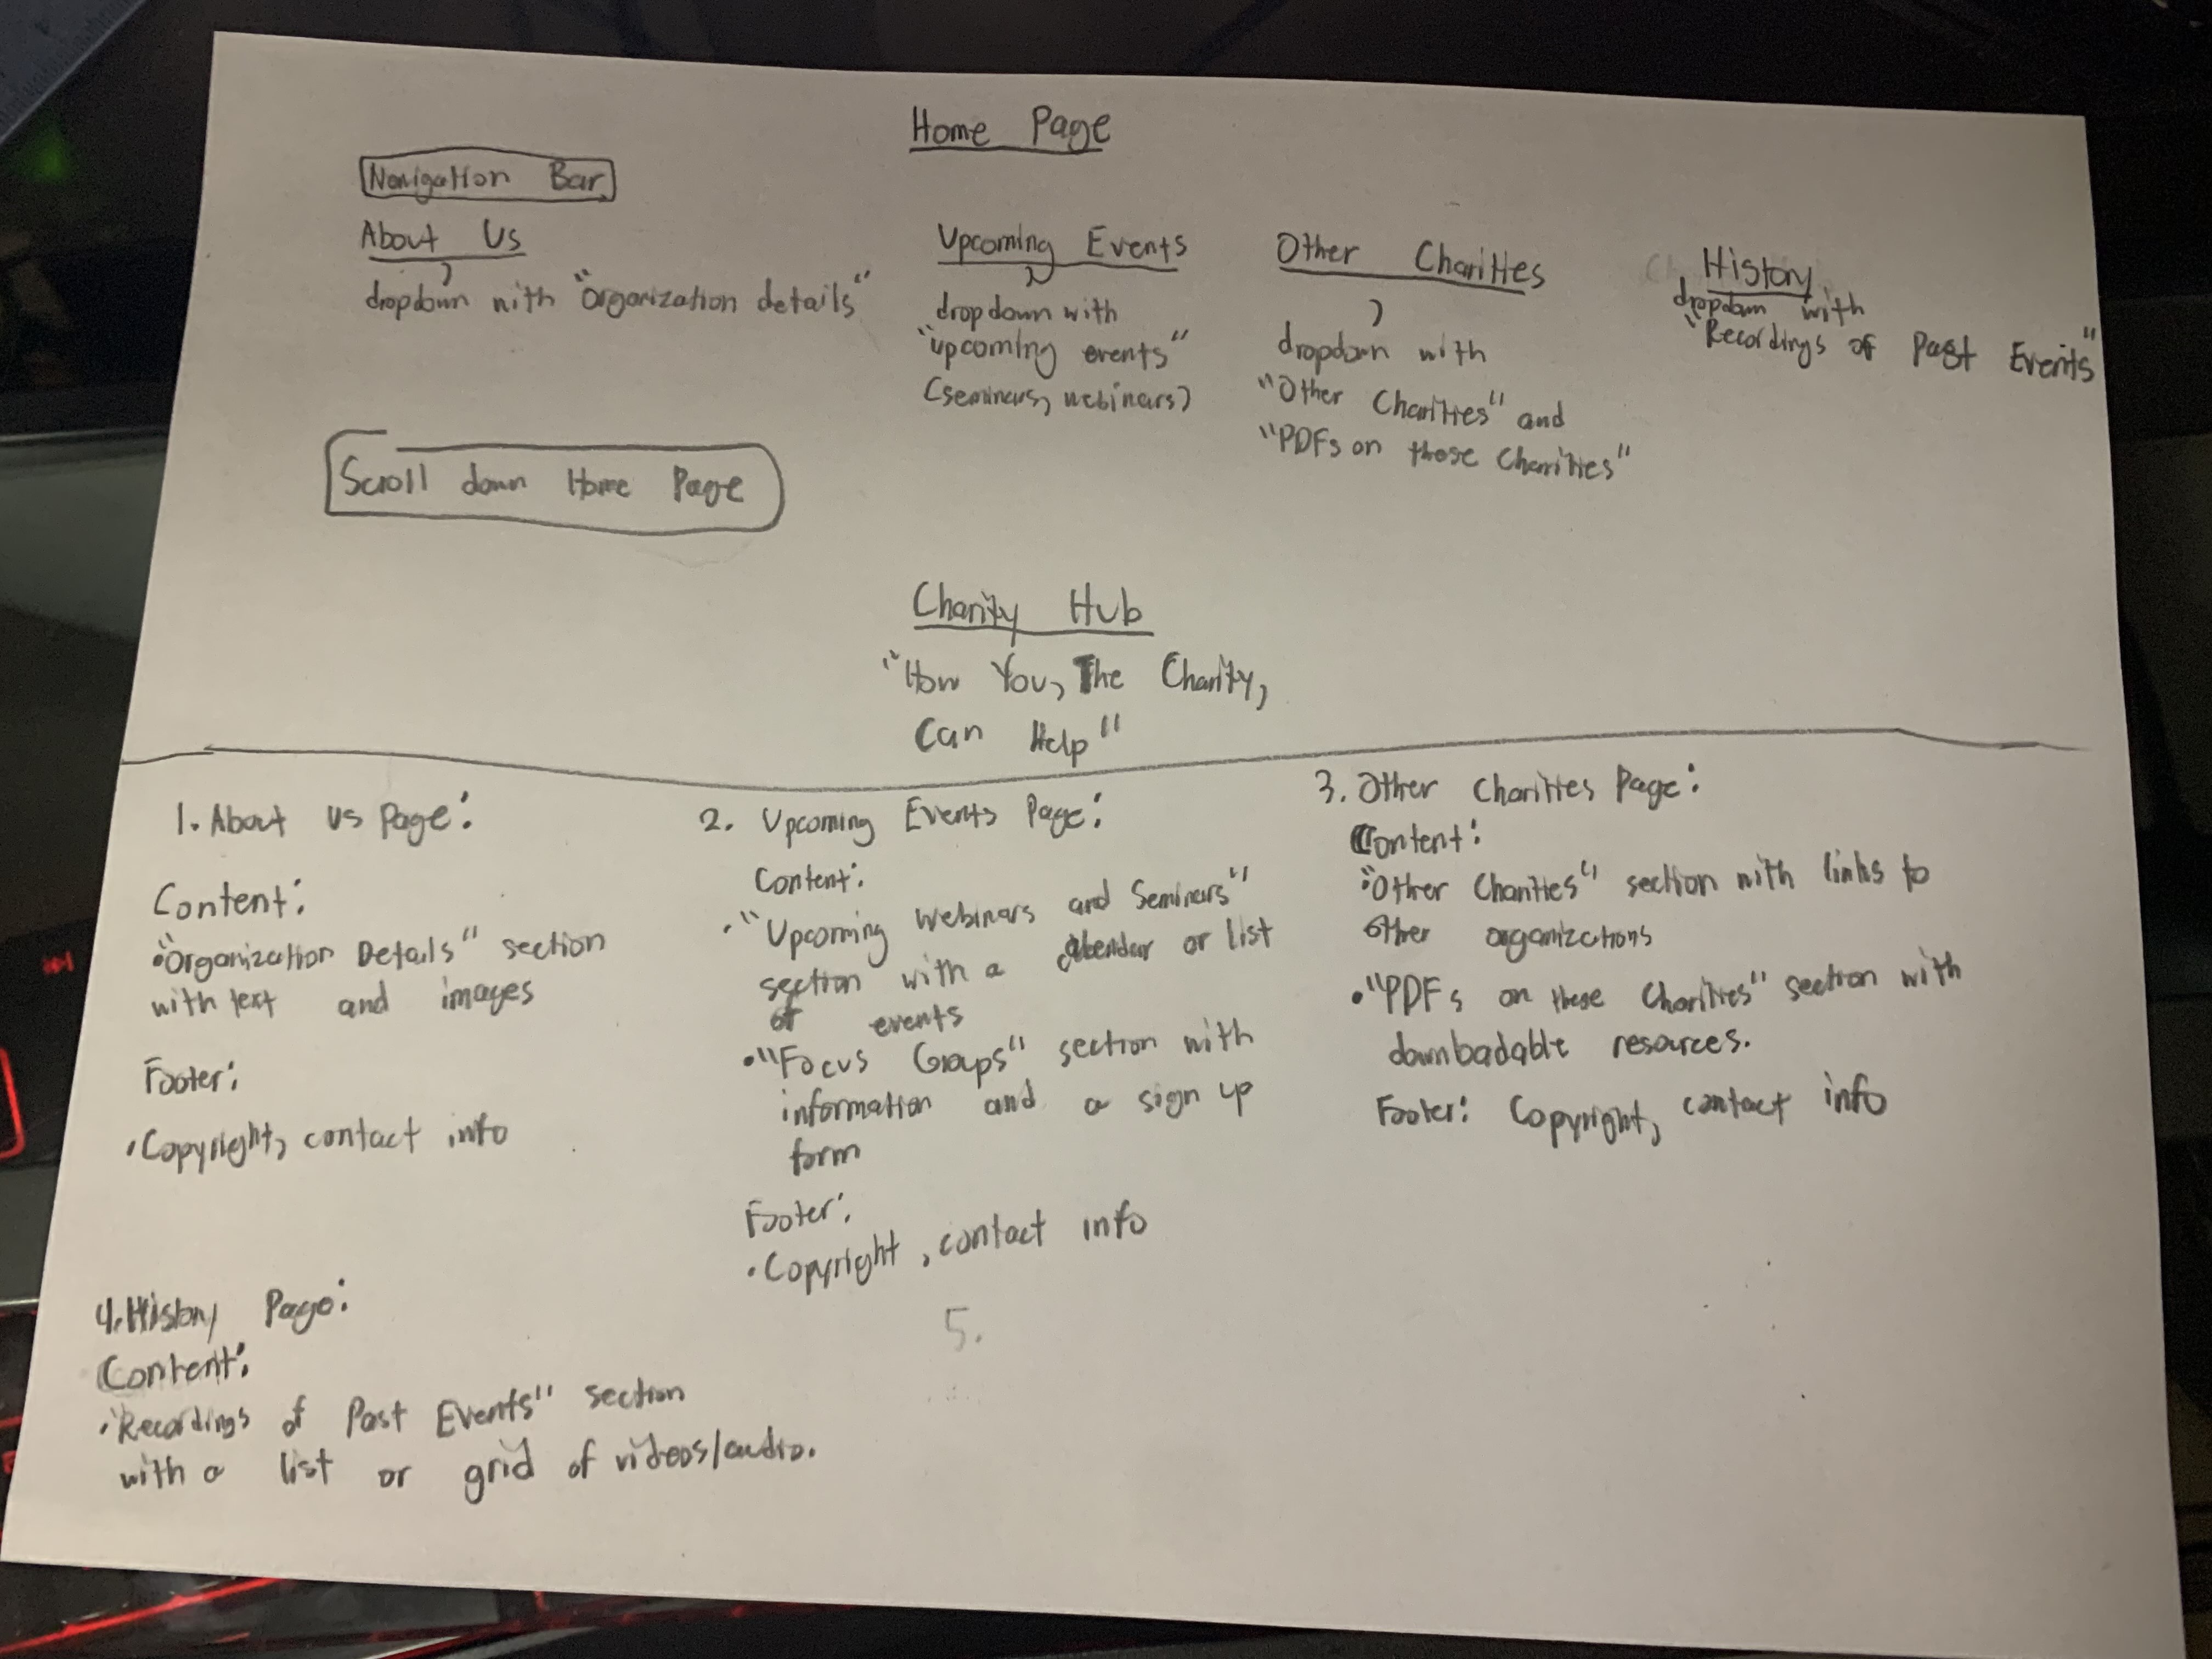 Home Page
Navigation Bar
About Us
dropdown with "Organization details"
Upcoming Events
dropdown with
"upcoming events"
(seminars, webinars)
Other Charities
dropdown with
"Other Charities" and
"PDFs on those Charities"
History
dropdown with
"Recordings of Past Events"
Scroll down Home Page
Charity Hub
"How You, The Charity,
Can Help"
1. About Us Page:
Content:
• "Organization Details" section
with text and images
Footer:
• Copyright, contact info
2. Upcoming Events Page:
Content:
• "Upcoming Webinars and Seminars"
section with a calendar or list
of events
• "Focus Groups" section with
information and a sign up
form
Footer:
• Copyright, contact info
3. Other Charities Page:
Content:
• "Other Charities" section with links to
other organizations
• "PDFs on these Charities" section with
downloadable resources.
Footer: Copyright, contact info
4. History Page:
Content:
• "Recordings of Past Events" section
with a list or grid of videos/audio.
5.